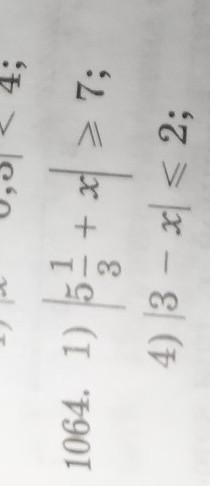 0,3| < 4;
1064. 1) |5 1/3 + x| ⩾ 7;
4) |3 − x| ⩽ 2;